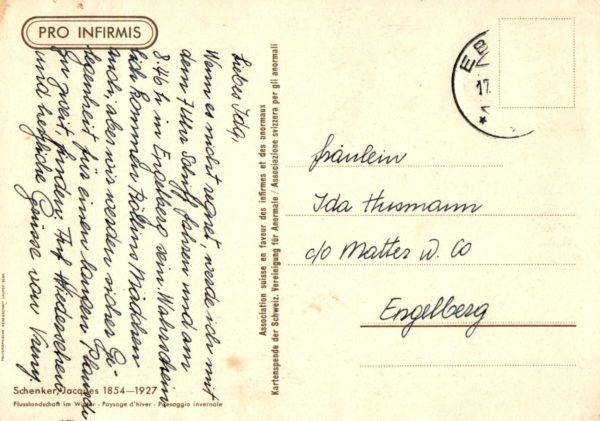 PRO INFIRMIS
Liebes Idy,
Wenn es nicht regnet, werde ich mit
dem 7 Uhr Schiff fahren und am
8.46 h in Engelberg sein. Wahrschein
lich kommen Mädchen
auch, aber wir werden sicher Ge-
legenheit für einen kurzen
zu zweit finden. Auf Wiedersehen
und herzliche Grüsse von
Association suisse en faveur des infirmes et des anormaux
Kartenspende der Schweiz. Vereinigung für Anormale / Associazione svizzera per gli anormali
17.
Fräulein
Ida Husmann
c/o Matter u. Co
Engelberg
Schenker, Jacques 1854—1927
Flusslandschaft im Winter - Paysage d'hiver - Paesaggio invernale